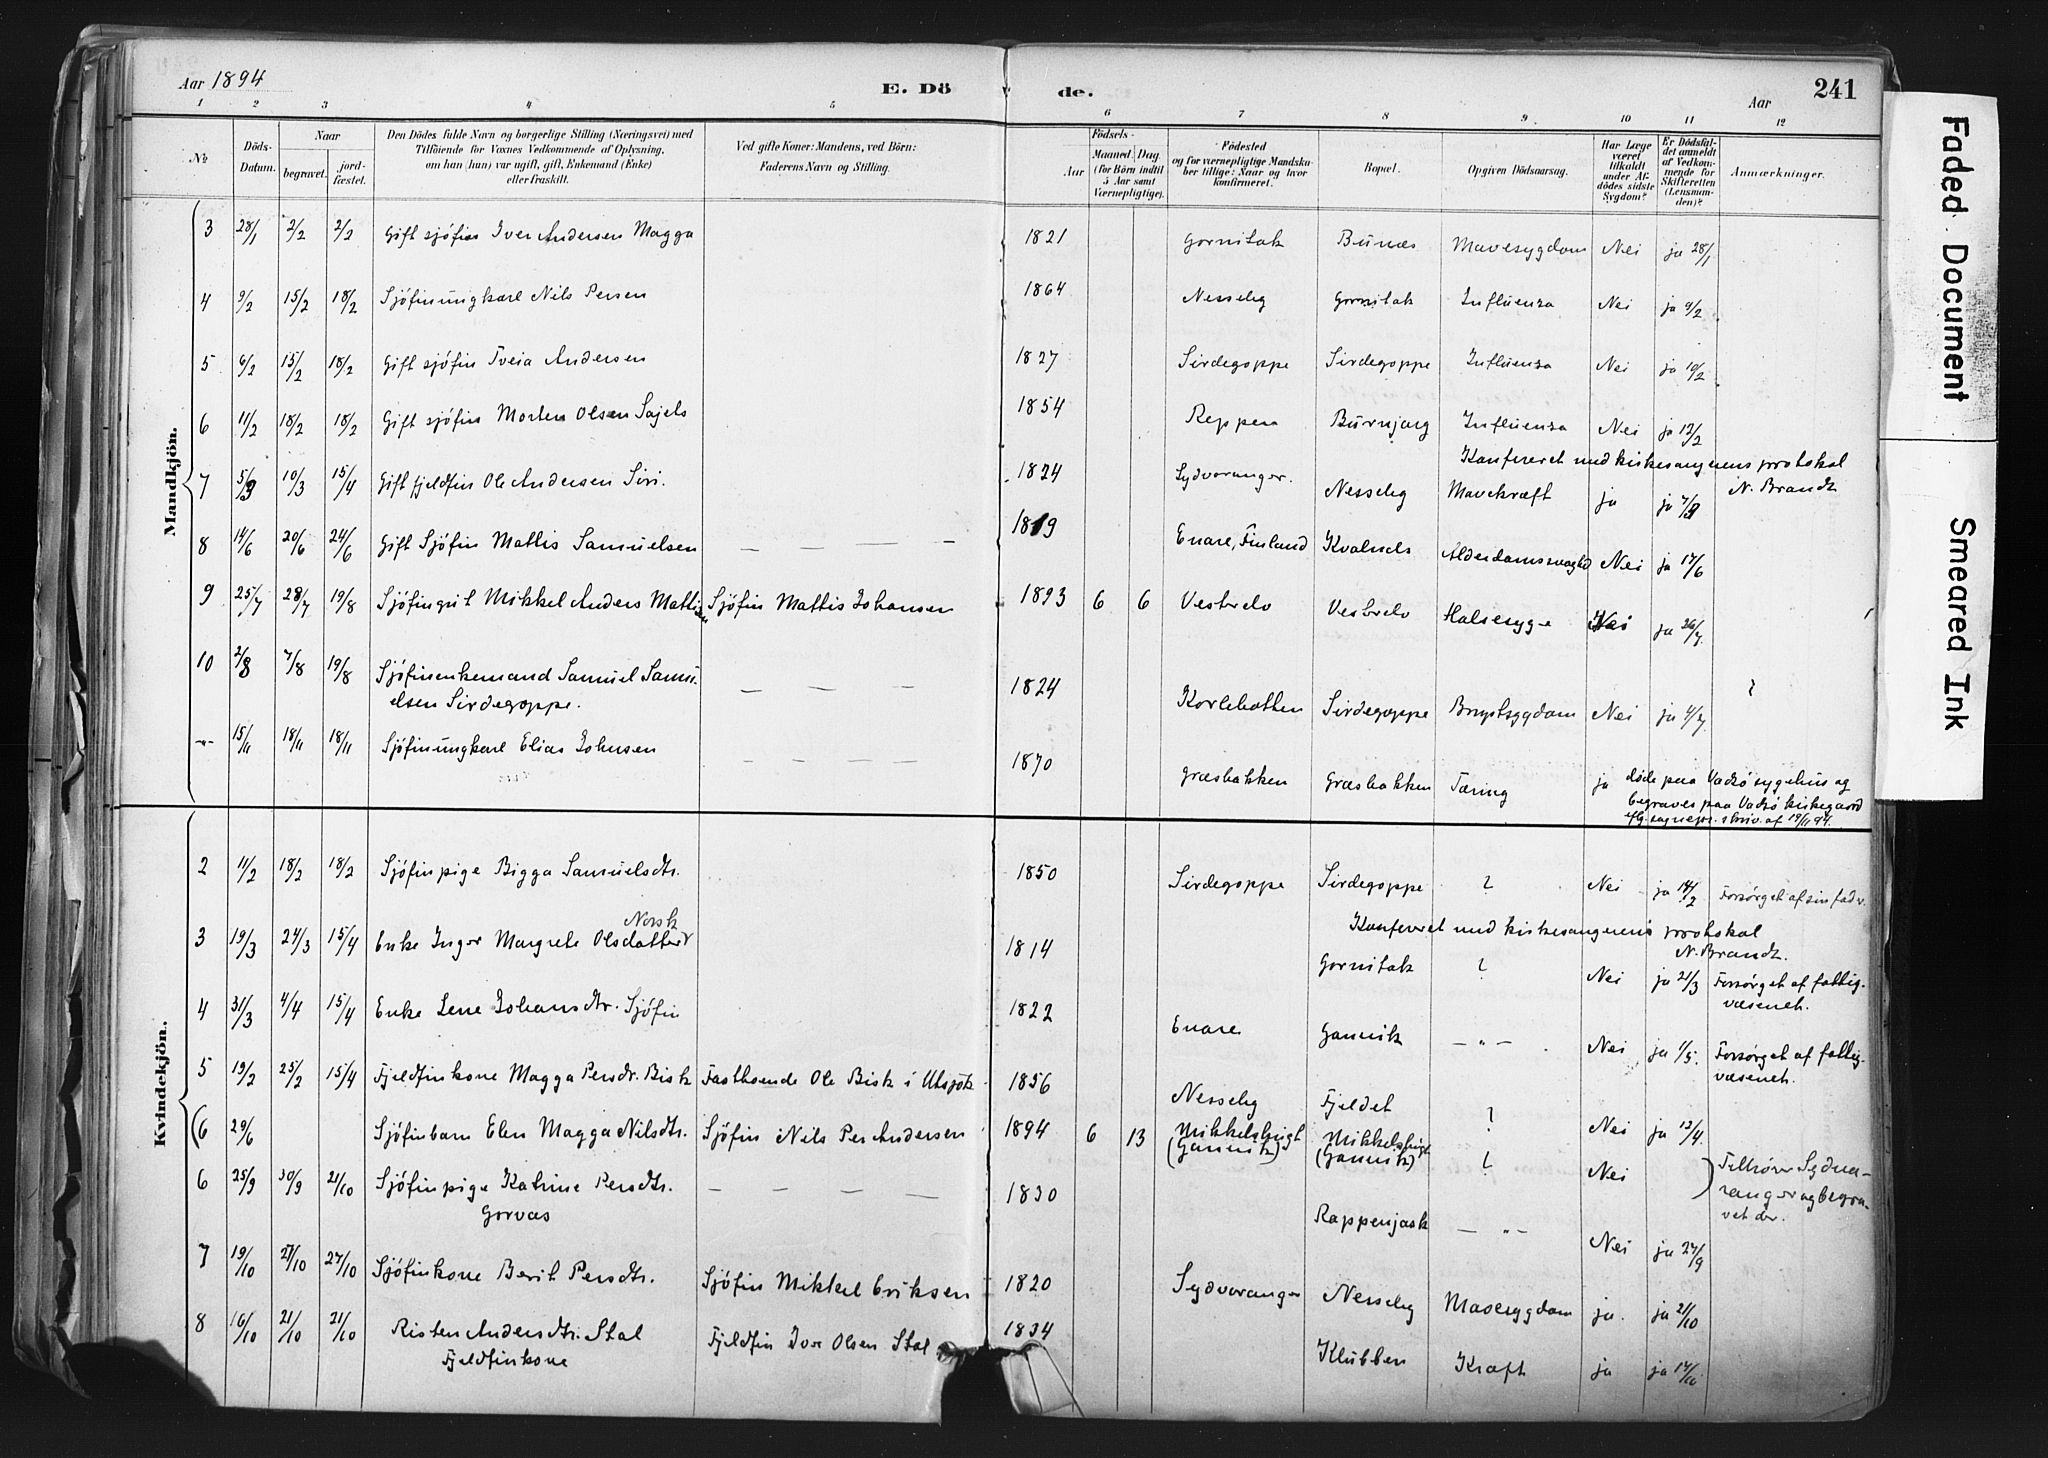 Aar 1894
E. Dö
de.
Aar
241
1 2 3 4 5 6 7 8 9 10 11 12
No
Döds-Datum.
Naar
begravet.
jord-fæstet.
Den Dödes fulde Navn og borgerlige Stilling (Næringsvei) med
Tilföiende for Voxnes Vedkommende af Oplysning,
om han (hun) var ugift, gift, Enkemand (Enke)
eller fraskilt.
Ved gifte Koner: Mandens, ved Börn:
Faderens Navn og Stilling.
Födsels-
Aar
Maaned. Dag.
(for Börn indtil
5 Aar samt
Værnepligtige).
Födested
og for værnepligtige Mandska-
ber tillige: Naar og hvor
konfirmeret.
Bopæl.
Opgiven Dödsaarsag.
Har Læge
været
tilkaldt
under Af-
dödes sidste
Sygdom?
Er Dödsfal-
det anmeldt
af Vedkom-
mende for
Skifteretten
(Lensman-
den)?
Anmærkninger.
Mandkjön.
3 28/1 2/2 2/2 Gift sjöfin Iver Andersen Magga 1821 Gornitak Bunæs Mavesygdom Nei ja 28/1
4 9/2 15/2 18/2 Sjöfinungkarl Nils Persen 1864 Nesseby Gornitak Influenza Nei ja 9/2
5 6/2 15/2 18/2 Gift sjöfin Tveia Andersen 1827 Sirdegoppe Sirdegoppe Influenza Nei ja 10/2
6 11/2 18/2 18/2 Gift sjöfin Morten Olsen Sajets 1854 Reppen Burnjarg Influenza Nei ja 12/2
Konfereret med kirkesangerens protokol
N. Brandt
7 5/3 10/3 15/4 Gift fjeldfin Ole Andersen Siri. 1824 Sydvaranger. Nesseby Mavekræft ja ja 7/3
8 14/6 20/6 24/6 Gift Sjöfin Mattis Samuelsen — — — - 1819 Enare, Finland Kvalnes Alderdomssvaghed Nei ja 17/6
9 25/7 28/7 19/8 Sjöfingut Mikkel Anders Mattisen Sjöfin Mattis Johansen 1893 6 6 Vesterelv Vesterelv Halssyge Nei ja 26/7
10 2/8 7/8 19/8 Sjöfinenkemand Samuel Samu-
elsen Sirdegoppe. — — — 1824 Sirdegoppe Brystsygdom Nei ja 4/7 ?
-"- 15/11 18/11 18/11 Sjöfinungkarl Elias Johnsen 1870 Græsbakken Græsbakken Tæring ja døde paa Vadsö sygehus og
begraves paa Vadsö kirkegaard
skriv. af 19/11 94.
Kvindekjön.
2 11/2 18/2 18/2 Sjöfinpige Bigga Samuelsdtr. 1850 Sirdegoppe Sirdegoppe ? Nei ja 14/2 Forsörget af sin fader.
Konfereret med kirkesangerens protokol
N. Brandt.
3 19/3 24/3 15/4 Enke Inger Margrete Olsdatter Norsk 1814 Gornitak ? Nei ja 21/3 Forsörget af fattig-
væsenet.
4 31/3 4/4 15/4 Enke Lene Johansdtr. Sjöfin 1822 Enare Gannik — " — Nei ja 1/5. Forsörget af fattig-
væsenet.
5 19/2 25/2 15/4 Fjeldfinkone Magga Persdtr. Bisk Fastboende Ole Bisk i Utsjök 1856 Nesseby Fjeldet ? Nei ja 12/4.
(6 29/6 Sjöfinbarn Elen Magga Nilsdtr. Sjöfin Nils Per Andersen 1894 6 13 Nei ) Tilhörer Sydva-
ranger og begra-
vet der.
6 25/9 30/9 21/10 Sjöfinpige Katrine Persdtr.
Gorvas — — — — 1830 Rappenjask — " — Nei ja 27/9
7 19/10 27/10 27/10 Sjöfinkone Berit Persdtr. Sjöfin Mikkel Eriksen 1820 Sydvaranger Nesseby Mavesygdom ja. ja 21/10
8 16/10 21/10 21/10 Risten Andersdtr. Stal
Fjeldfinkone Fjeldfin Iver Olsen Stal 1834 Klubben Kræft ja ja 17/10
Faded Document
Smeared Ink